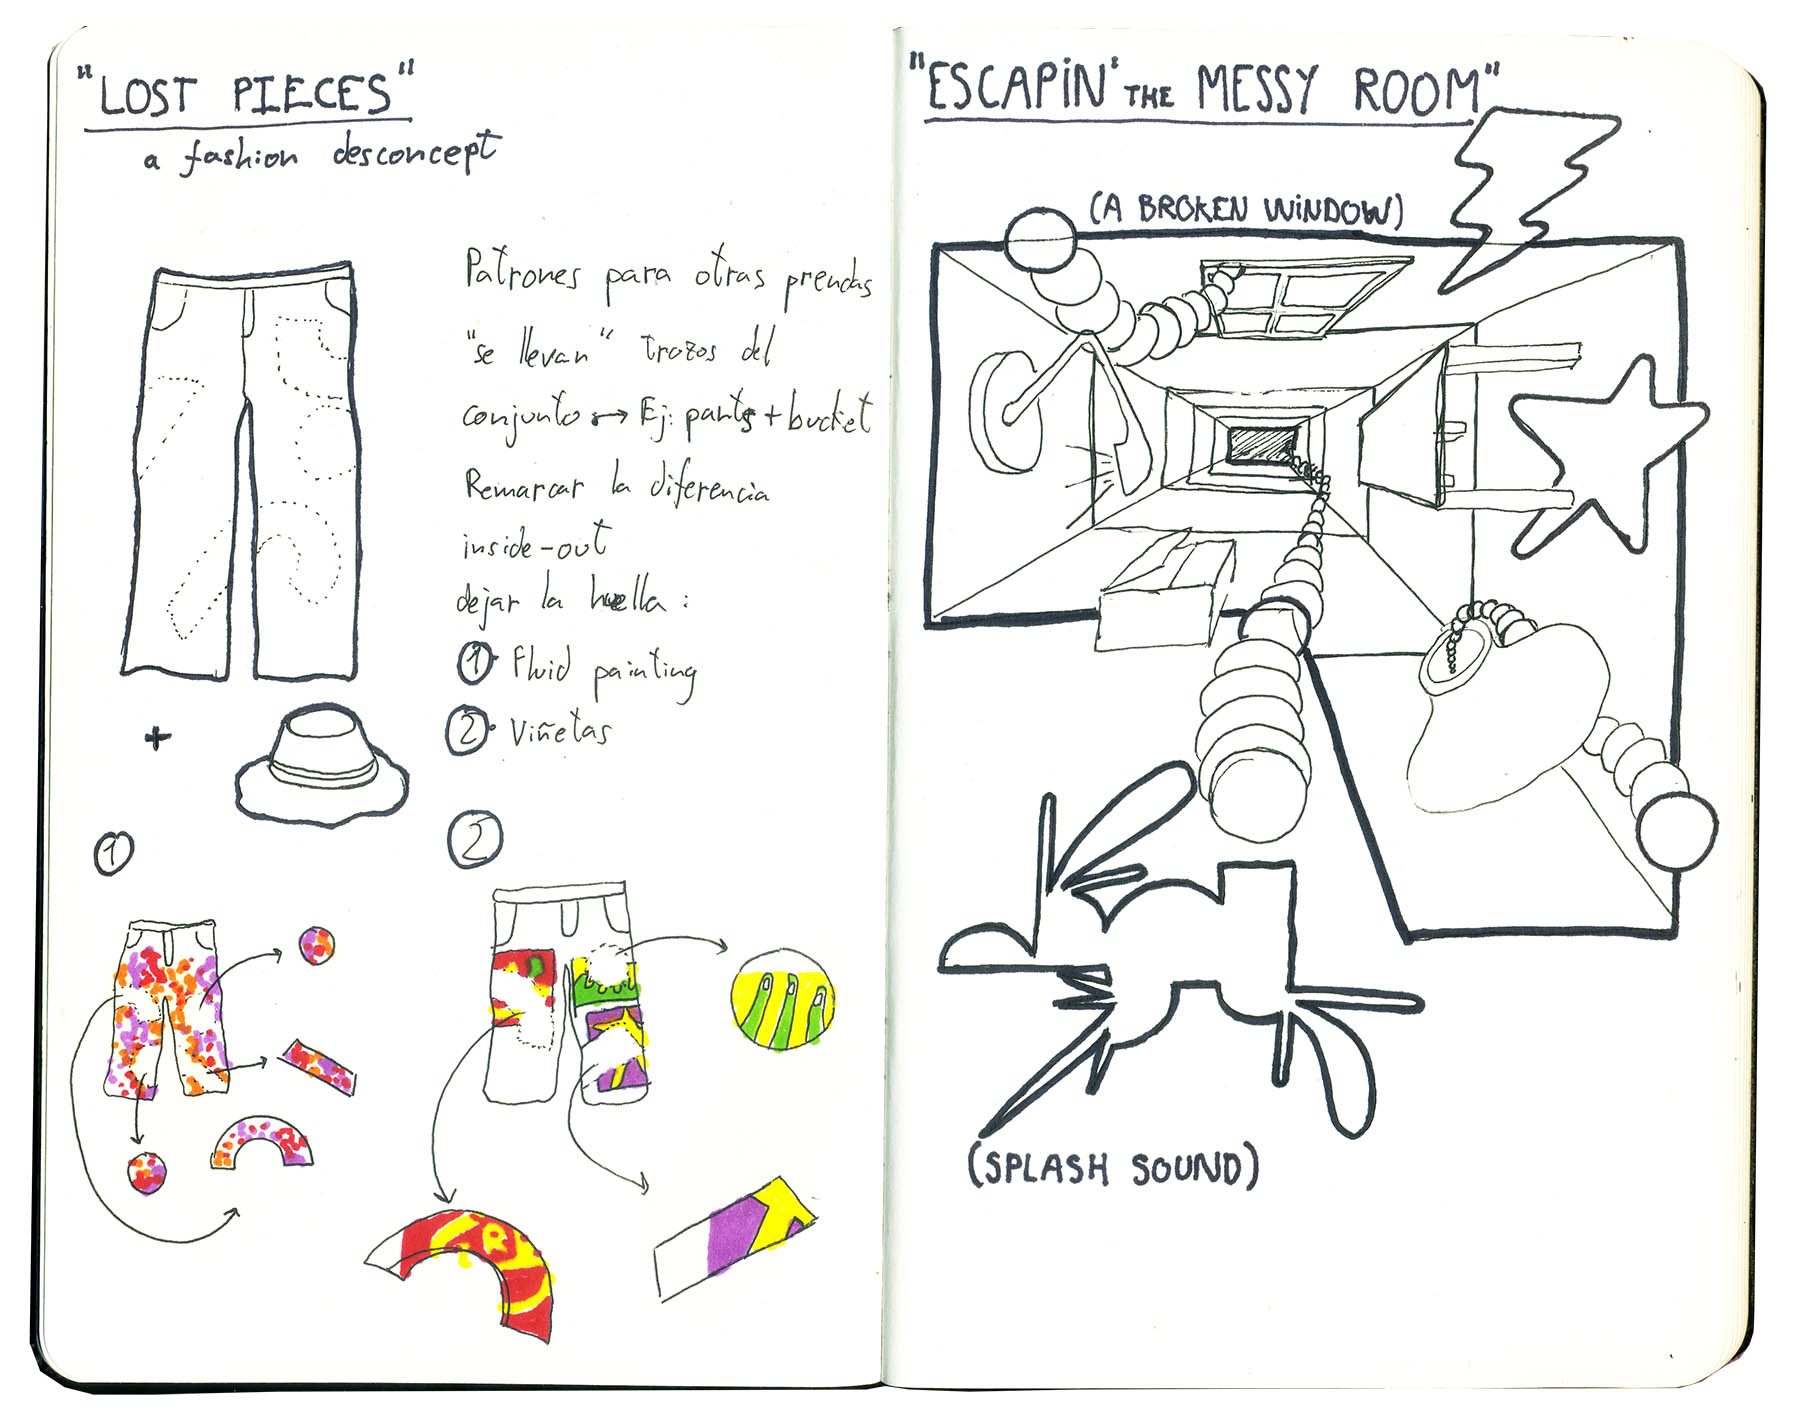 "LOST PIECES"
a fashion desconcept
Patrones para otras prendas
"se llevan" trozos del
conjunto → Ej: pants + bucket
Remarcar la diferencia
inside-out
dejar la huella :
1. Fluid painting
2. Viñetas
+
1
2
"ESCAPiN' THE MESSY ROOM"
(A BROKEN WiNDOW)
(SPLASH SOUND)